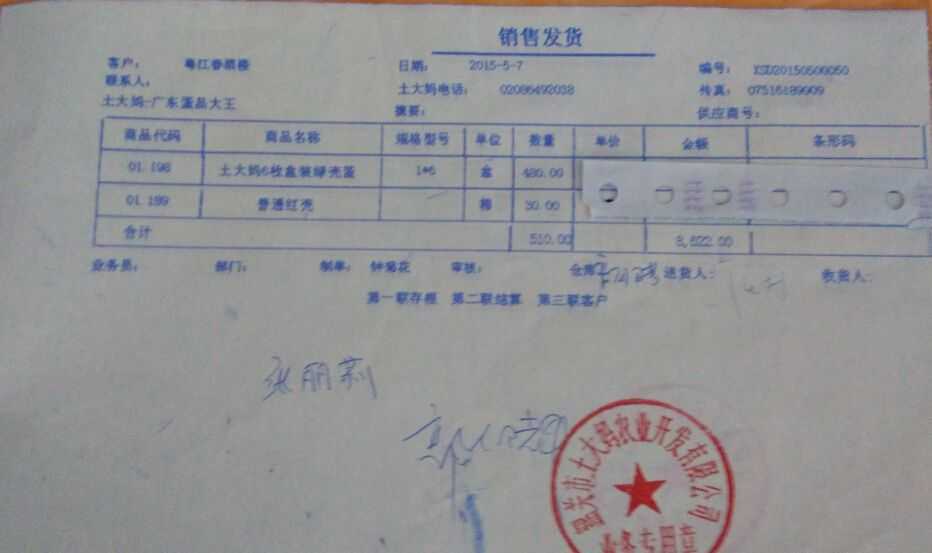 销售发货
客户： 粤江春酒楼 日期： 2015-5-7 编号： XSD20150500050
联系人： 土大妈电话： 02086492038 传真： 07516189909
土大妈-广东蛋品大王 摘要： 供应商号：
商品代码 商品名称 规格型号 单位 数量 单价 金额 条形码
01.198 土大妈6枚盒装绿壳蛋 1*6 盒 480.00
01.199 普通红壳 30.00
合计 510.00 8,622.00
业务员： 部门： 制单： 钟菊花 审核： 仓库 送货人： 收货人：
第一联存根 第二联结算 第三联客户
张丽莉
韶关市土大妈农业开发有限公司
业务专用章